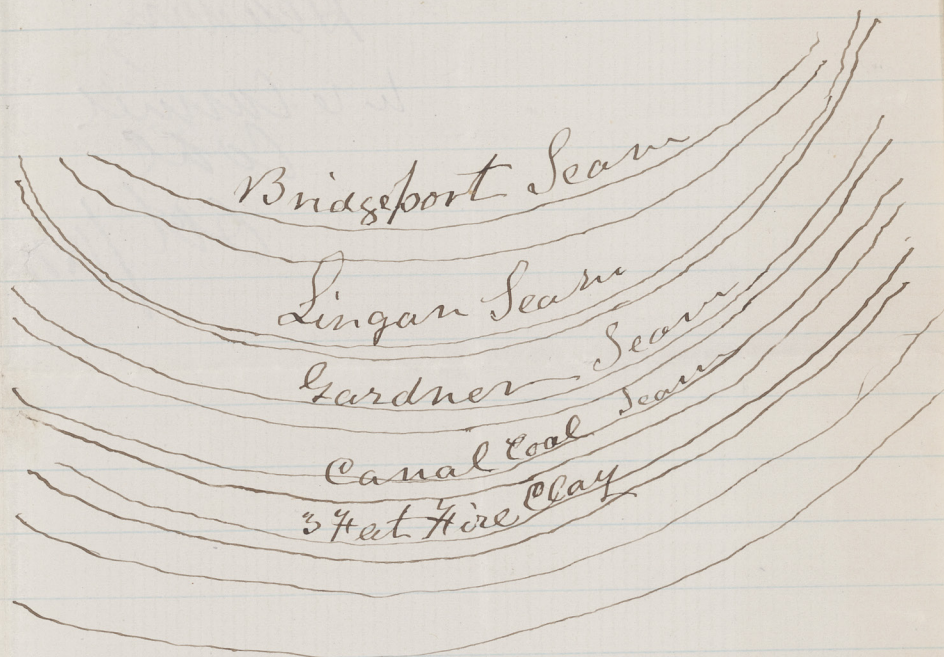 Bridgeport Seam
Lingan Seam
Gardner Seam
Canal Coal Seam
3 Feet Fire Clay